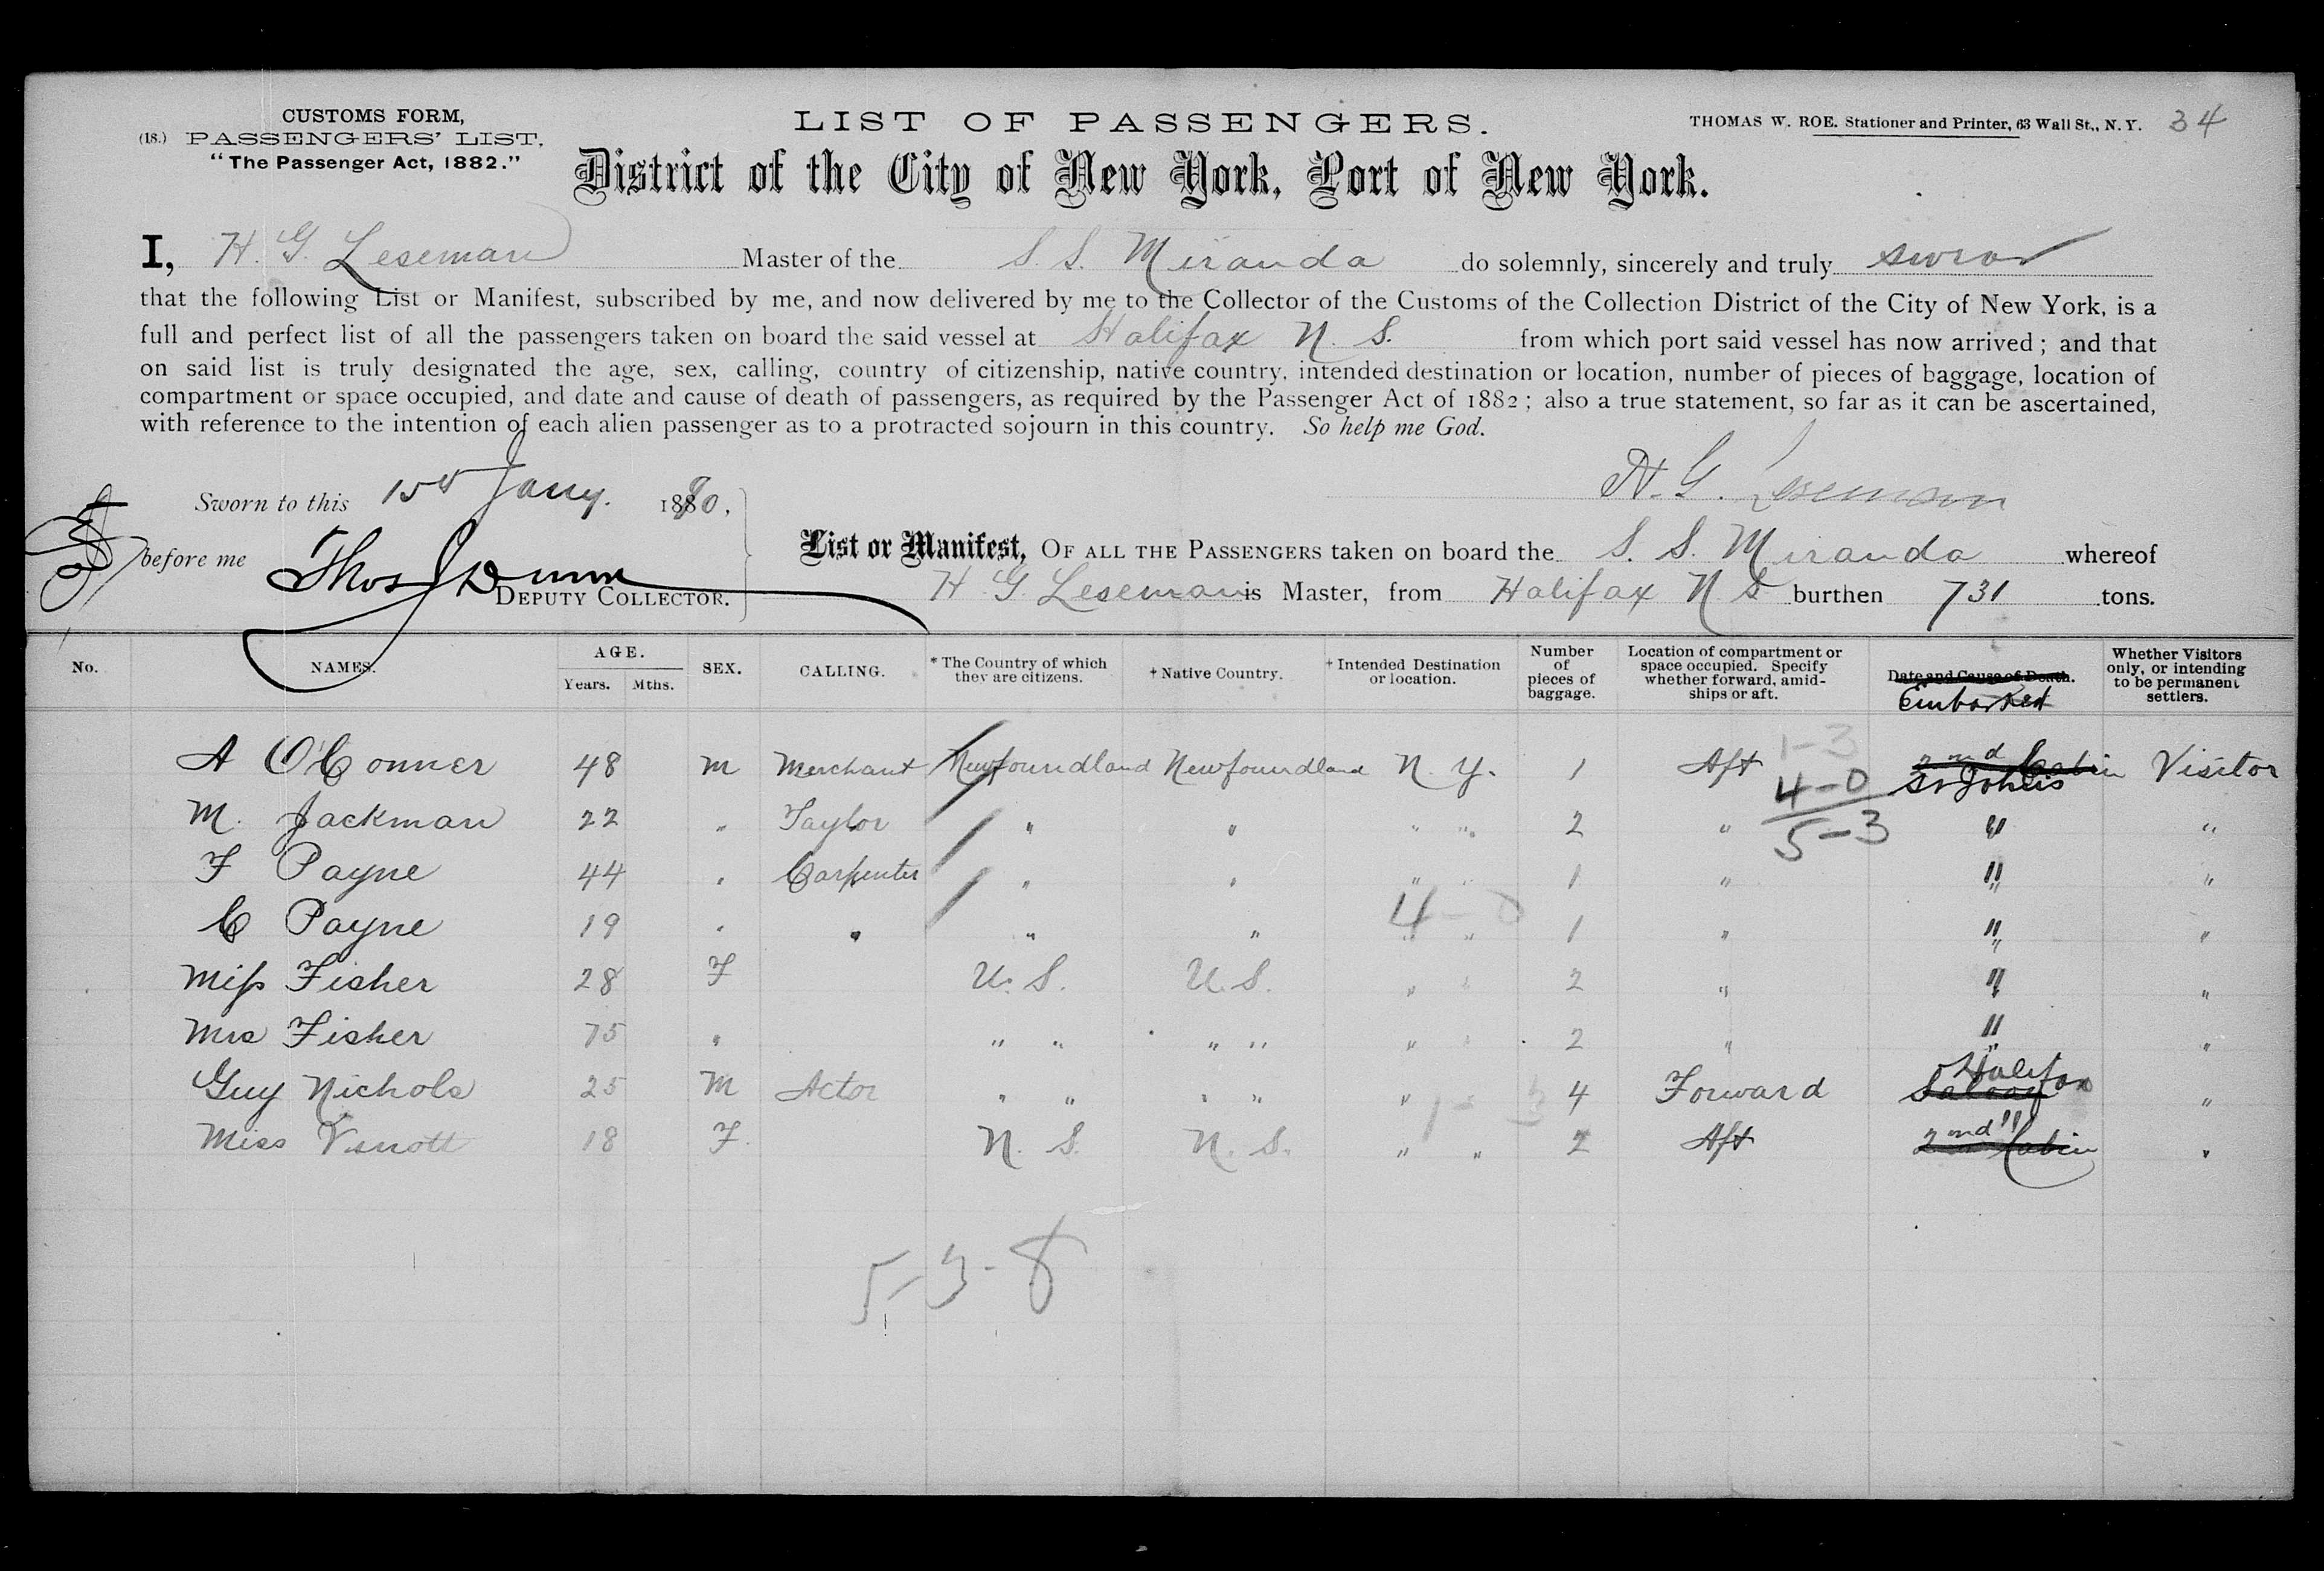 CUSTOMS FORM,
(18.) PASSENGERS' LIST,
"The Passenger Act, 1882."
LIST OF PASSENGERS.
THOMAS W. ROE. Stationer and Printer, 63 Wall St., N. Y. 34
District of the City of New York, Port of New York.
I, H. G. Leseman Master of the S. S. Miranda do solemnly, sincerely and truly swear
that the following List or Manifest, subscribed by me, and now delivered by me to the Collector of the Customs of the Collection District of the City of New York, is a
full and perfect list of all the passengers taken on board the said vessel at Halifax N. S. from which port said vessel has now arrived; and that
on said list is truly designated the age, sex, calling, country of citizenship, native country, intended destination or location, number of pieces of baggage, location of
compartment or space occupied, and date and cause of death of passengers, as required by the Passenger Act of 1882; also a true statement, so far as it can be ascertained,
with reference to the intention of each alien passenger as to a protracted sojourn in this country. So help me God.
H. G. Leseman
Sworn to this Jany. 1890,
before me Thos J Dunn
DEPUTY COLLECTOR.
List or Manifest, OF ALL THE PASSENGERS taken on board the S. S. Miranda whereof
H. G. Leseman is Master, from Halifax N S burthen 731 tons.
No. NAMES. AGE. Years. Mths. SEX. CALLING. * The Country of which they are citizens. † Native Country. † Intended Destination or location. Number of pieces of baggage. Location of compartment or space occupied. Specify whether forward, amidships or aft. Date and Cause of Death. Embarked Whether Visitors only, or intending to be permanent settlers.
A O'Conner 48 M Merchant Newfoundland Newfoundland N. Y. 1 Aft 1-3 2nd Cabin St Johns Visitor
4-0
M. Jackman 22 " Taylor " " " " 2 " 5-3 " "
F Payne 44 " Carpenter " " " " 1 " " "
C Payne 19 " " " " " " 1 " " "
4-0
Miss Fisher 28 F U. S. U. S. " " 2 " " "
Mrs Fisher 75 " " " " " " " 2 " " "
Guy Nichols 25 M Actor " " " " " 4 Forward Saloon Halifax "
1-3
Miss 18 F. N. S. N. S. " " 2 Aft 2nd Cabin " "
5-3-8